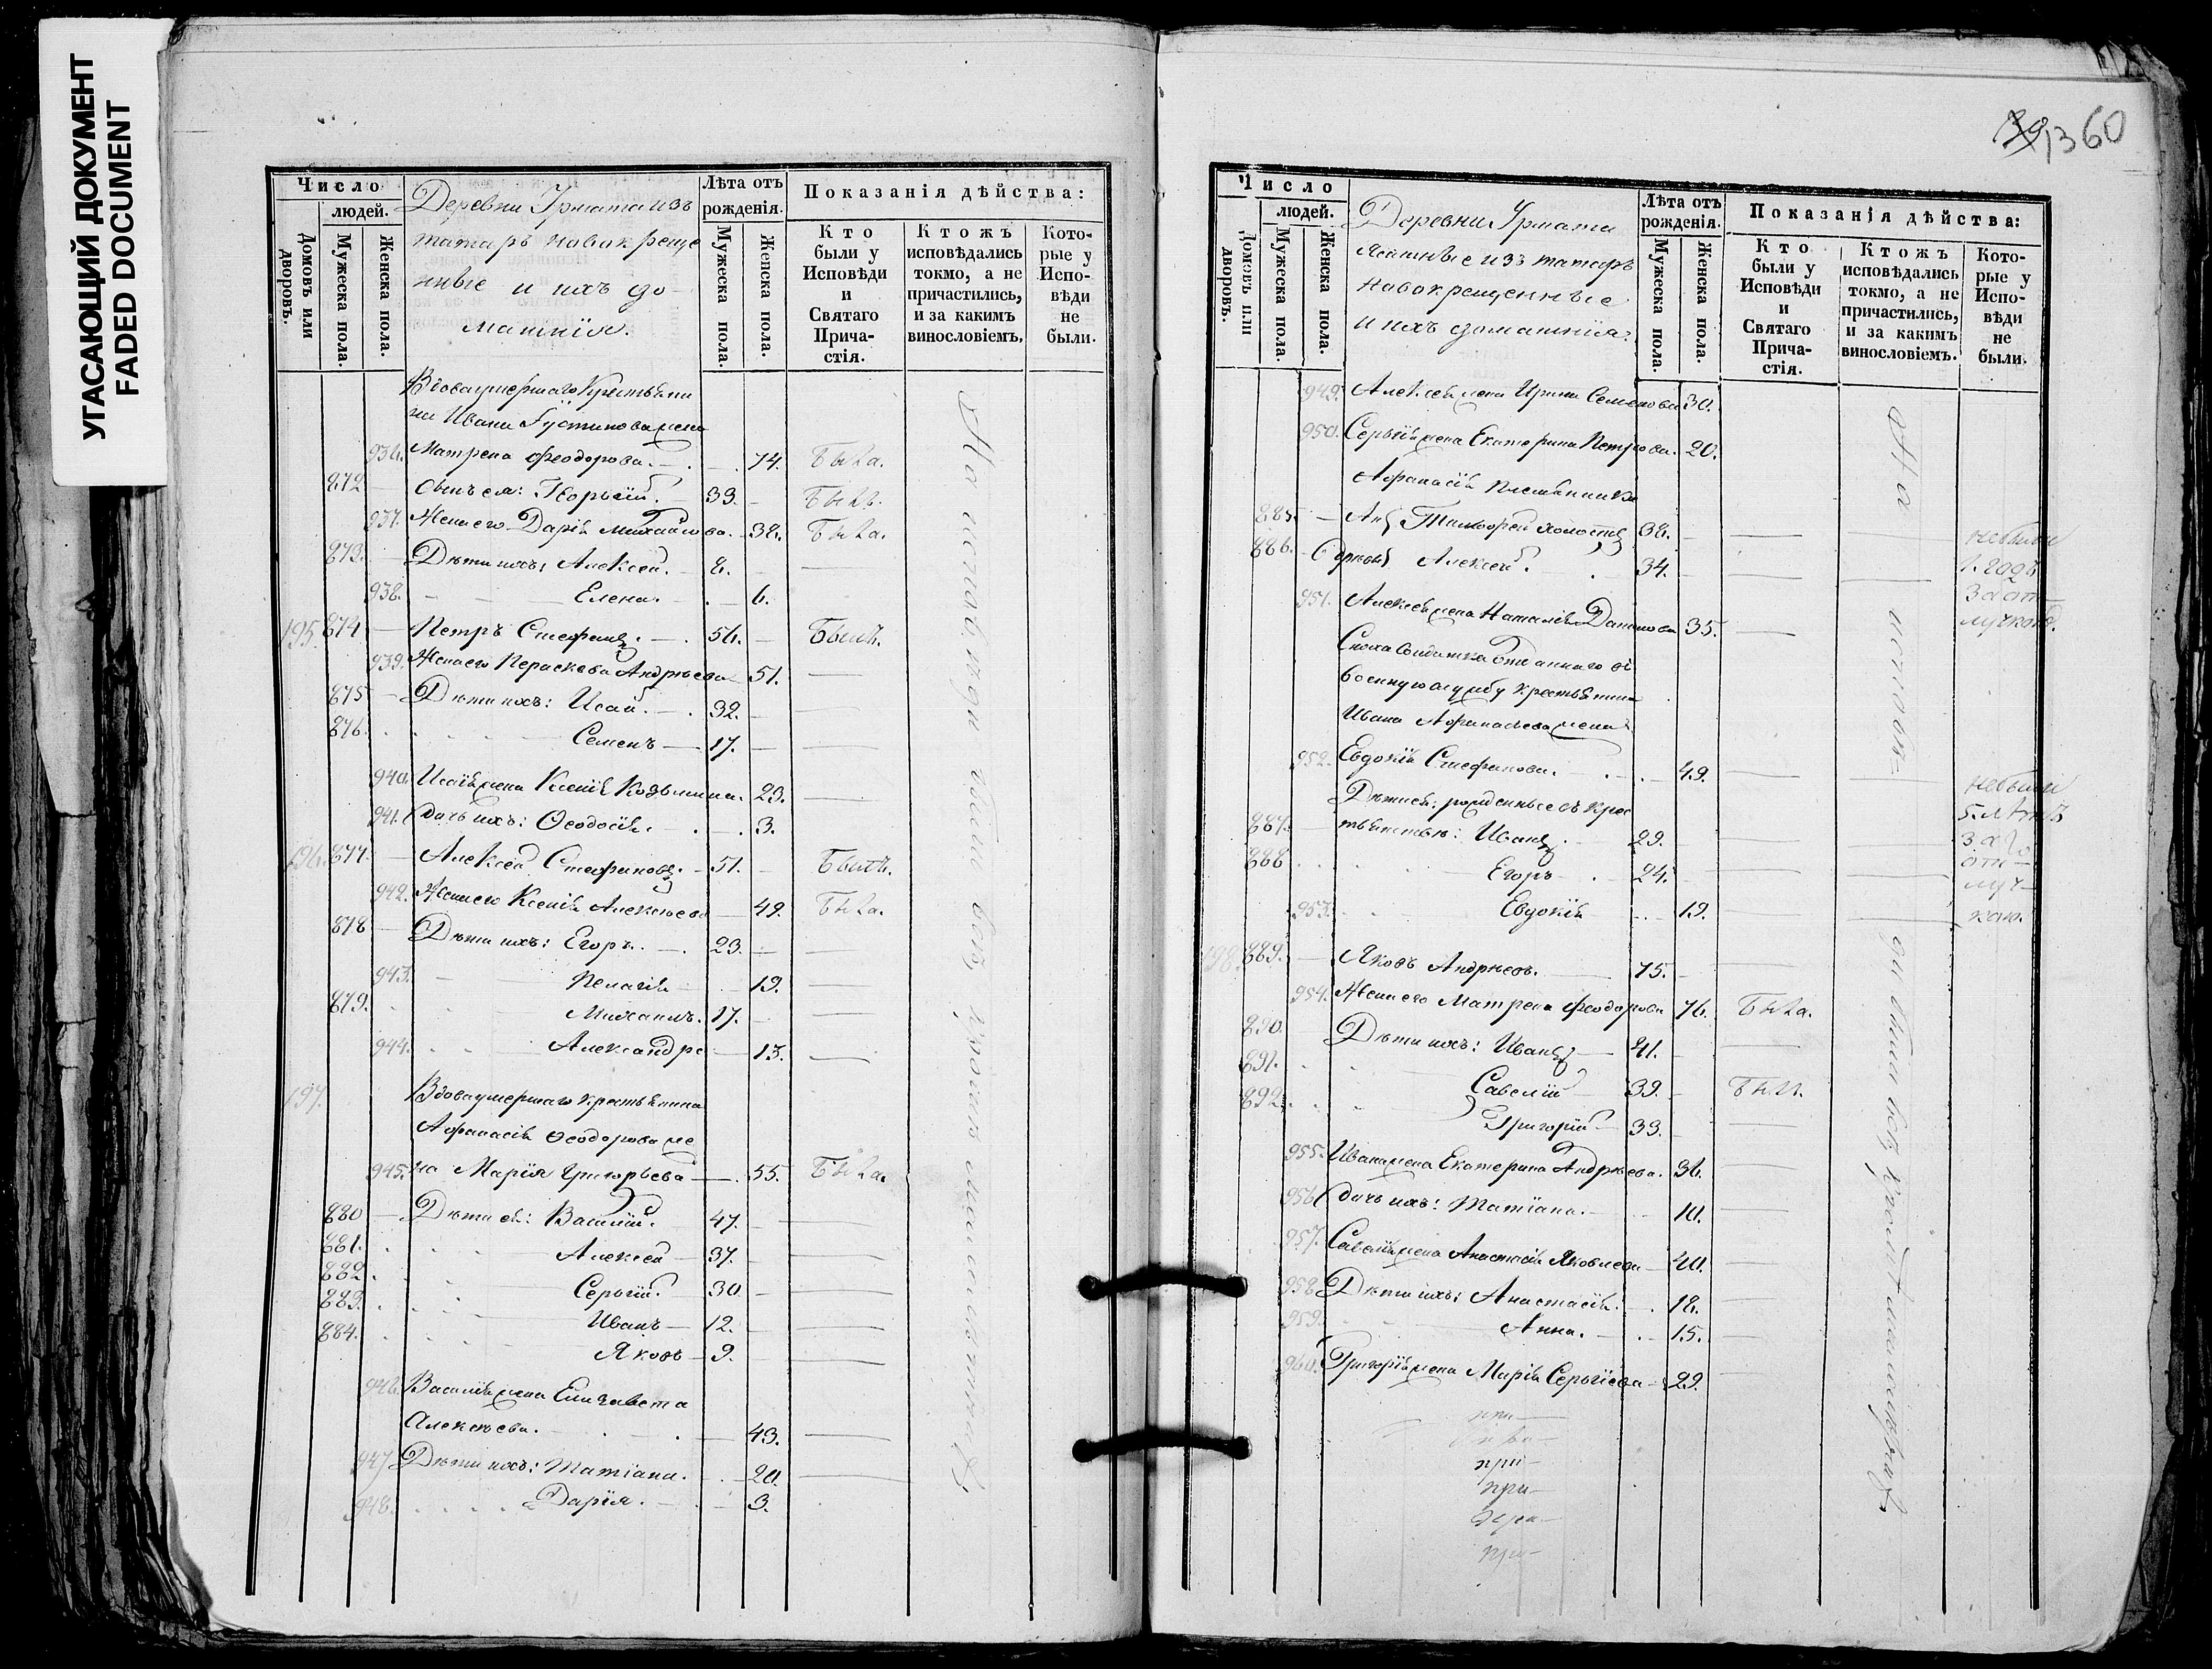 УГАСАЮЩИЙ ДОКУМЕНТ
FADED DOCUMENT
Число
людей.
Домовъ или дворовъ.
Мужеска пола.
Женска пола.
Деревни Урмата изъ
татаръ новокреще
нные и ихъ до
машнія
Лѣта отъ
рожденія.
Мужеска пола.
Женска пола.
Показанія дѣйства:
Кто
были у
Исповѣди
и
Святаго
Прича-
стія.
Ктожъ
исповѣдались
токмо, а не
причастились,
и за какимъ
винословіемъ.
Кото-
рые у
Испо-
вѣди
не
были.
Вдова умершаго Крестьяни
на Ивана Густинова жена
936. Матрена Феодорова. 74. Была.
872 Сынъ ея: Георгій. 33. Былъ.
937. Жена его Дарія Михайлова. 38. Была.
873. Дѣти ихъ: Алексей. 8.
938. Елена. 6.
195. 874 Петръ Стефановъ. 56. Былъ.
939. Жена его Параскева Андрѣева 51.
875 Дѣти ихъ: Исай. 32.
876. Семенъ 17.
940. Исаія жена Ксенія Козьмина. 23.
941. Дочь ихъ: Ѳеодосія. 3.
196. 877. Алексей Стефановъ. 51. Былъ.
942. Жена его Ксенія Алексѣева 49. Была.
878 Дѣти ихъ: Егоръ. 23.
943. Пелагія 19.
879. Михаилъ. 17.
944. Александра 13.
197. Вдова умершаго крестьянина
Афанасія Ѳеодорова же
945. на Марія Григорьева 55. Была.
880 Дѣти ея: Василій. 47.
881. Алексей 37.
882. Сергій 30
883. Иванъ 12.
884. Яковъ 9.
946. Василія жена Елизавета
Алексѣева. 43.
947. Дѣти ихъ: Татіана. 20.
948. Дарія. 3.
На исповѣди были безъ
360
Число
людей.
Домовъ или дворовъ.
Мужеска пола.
Женска пола.
Деревни Урмати
Ясашные изъ татаръ
новокрещенные
и ихъ домашнія:
Лѣта отъ
рожденія.
Мужеска пола.
Женска пола.
Показанія дѣйства:
Кто
были у
Исповѣди
и
Святаго
Прича-
стія.
Ктожъ
исповѣдались
токмо, а не
причастились,
и за какимъ
винословіемъ.
Кото-
рые у
Испо-
вѣди
не
были.
949. Алексея жена Ирина Семенова 30.
950. Сергія жена Екатерина Петрова. 20.
Афанасія племянники
885. Тимофей холостъ 38. небыли
886. Алексей. 34. 1. годъ
951. Алексея жена Наталія Данилова 35. за от
лучкою.
Сноха Солдатка отданнаго въ
военную службу крестьянина
Ивана Афанасьева жена
952. Евдокія Стефанова. 49.
Дѣти ея: рожденные въ крес
887. тьянствѣ: Иванъ. 29.
888 Егоръ 24.
953. Евдокія 19.
небыли
5 лѣтъ
за
от
луч
кою.
198. 889. Яковъ Андрѣевъ. 75.
954. Жена его Матрена Феодорова 76. Была.
890. Дѣти ихъ: Иванъ 41.
891. Савелій 39. Былъ.
892. Григорій 33.
955. Ивана жена Екатерина Андрѣева. 36.
956. Дочь ихъ: Татіана. 10.
957. Савелія жена Анастасія Яковлева 40.
958. Дѣти ихъ: Анастасія. 18.
959. Анна. 15.
960. Григорія жена Марія Сергіева 29.
при
при
при
при